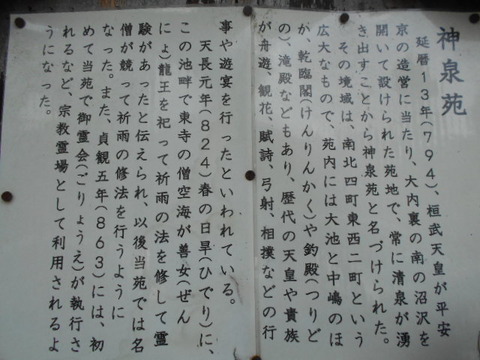 神泉苑
延暦13年(794)、桓武天皇が平安
京の造営に当たり、大内裏の南の沼沢を
開いて設けられた苑地で、常に清泉が湧
き出すことから神泉苑と名づけられた。
その境域は、南北四町東西二町という
広大なもので、苑内には大池と中嶋のほ
か、乾臨閣(けんりんかく)や釣殿(つりど
の)、滝殿などもあり、歴代の天皇や貴族
が舟遊、観花、賦詩、弓射、相撲などの行
事や遊宴を行ったといわれている。
天長元年(824)春の日旱(ひでり)に、
この池畔で東寺の僧空海が善女(ぜん
にょ)龍王を祀って祈雨の法を修して霊
験があったと伝えられ、以後当苑では名
僧が競って祈雨の修法を行うように
なった。また、貞観五年(863)には、初
めて当苑で御霊会(ごりょうえ)が執行さ
れるなど、宗教霊場として利用されるよ
うになった。